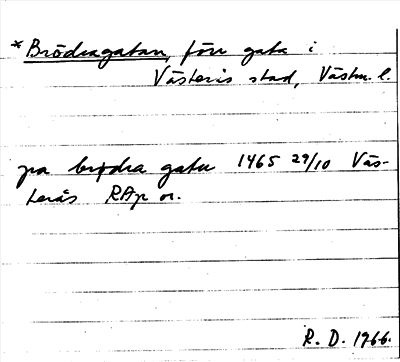 *Brödragatan, förr gata i
Västerås stad, Västm. l.
pa brødra gatu 1465 29/10 Väs-
terås RAp or.
R. D. 1966.